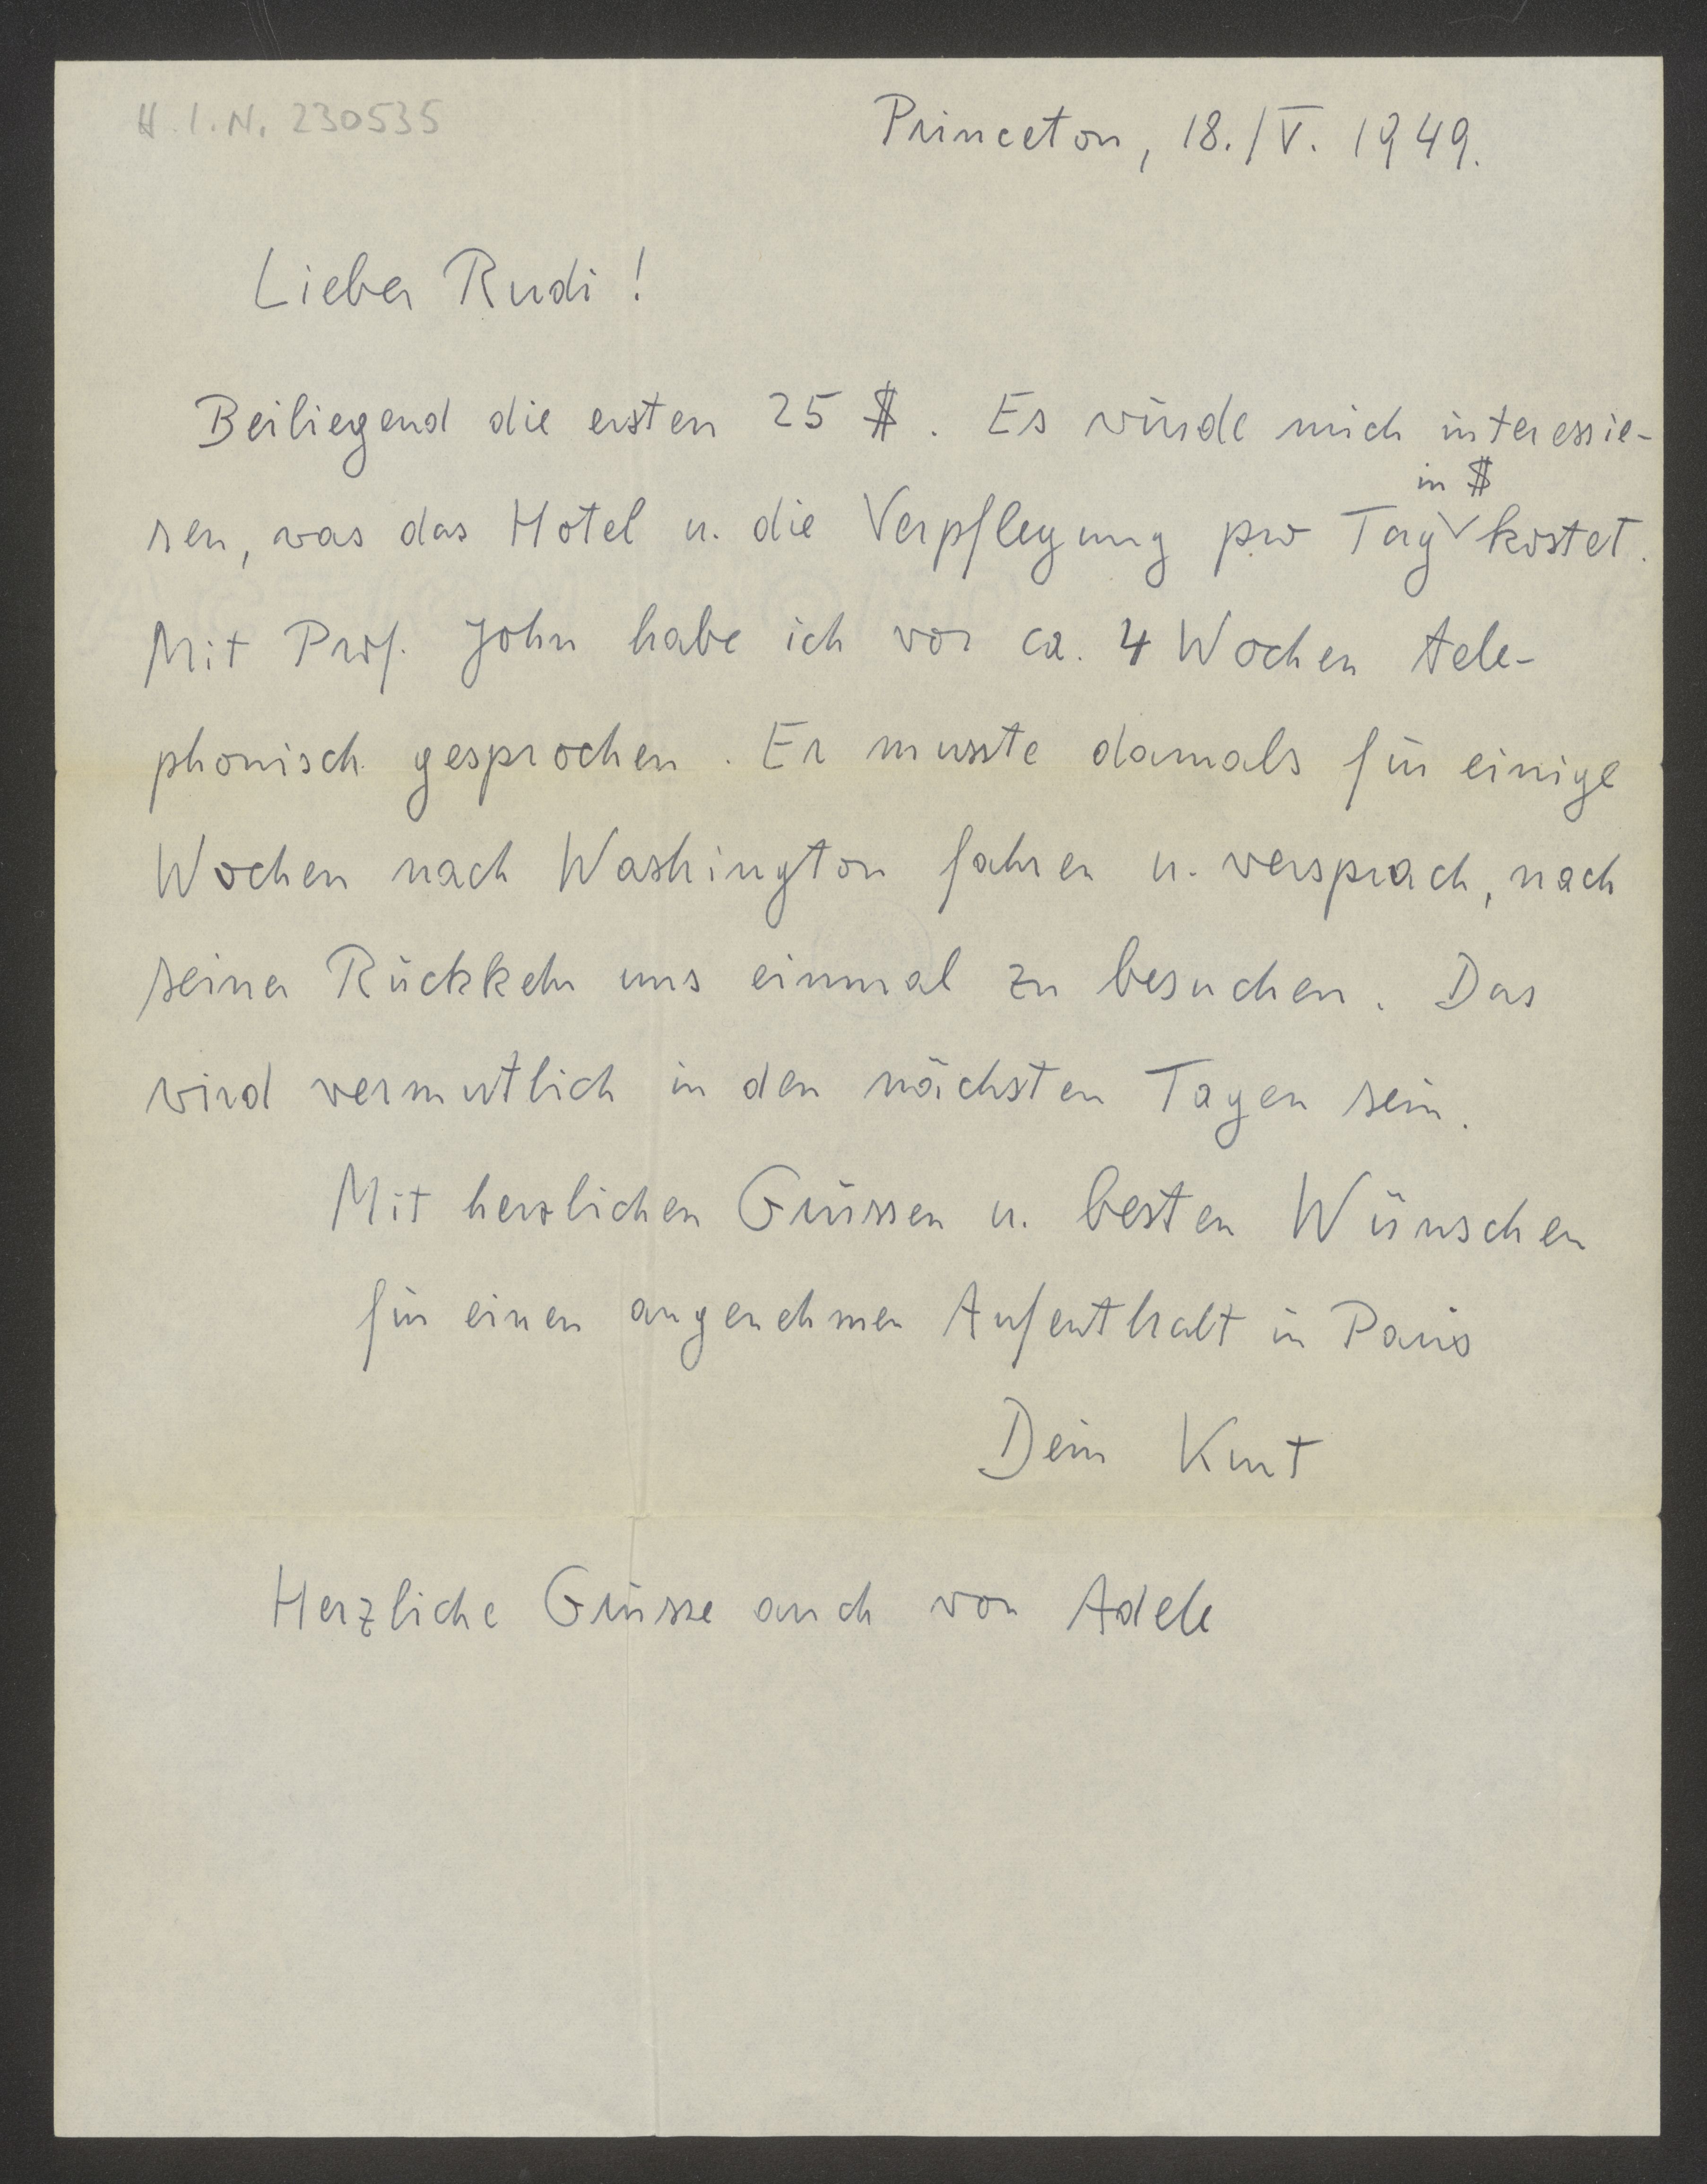 H.I.N. 230535
Princeton, 18./V. 1949.
Lieber Rudi !
Beiliegend die ersten 25 $. Es würde mich interessie-
in $
ren, was das Hotel u. die Verpflegung pro Tag kostet.
Mit Prof. John habe ich vor ca. 4 Wochen tele-
phonisch gesprochen. Er musste damals für einige
Wochen nach Washington fahren u. versprach, nach
seiner Rückkehr uns einmal zu besuchen. Das
wird vermutlich in den nächsten Tagen sein.
Mit herzlichen Grüssen u. besten Wünschen
für einen angenehmen Aufenthalt in Paris
Dein Kurt
Herzliche Grüsse auch von Adele